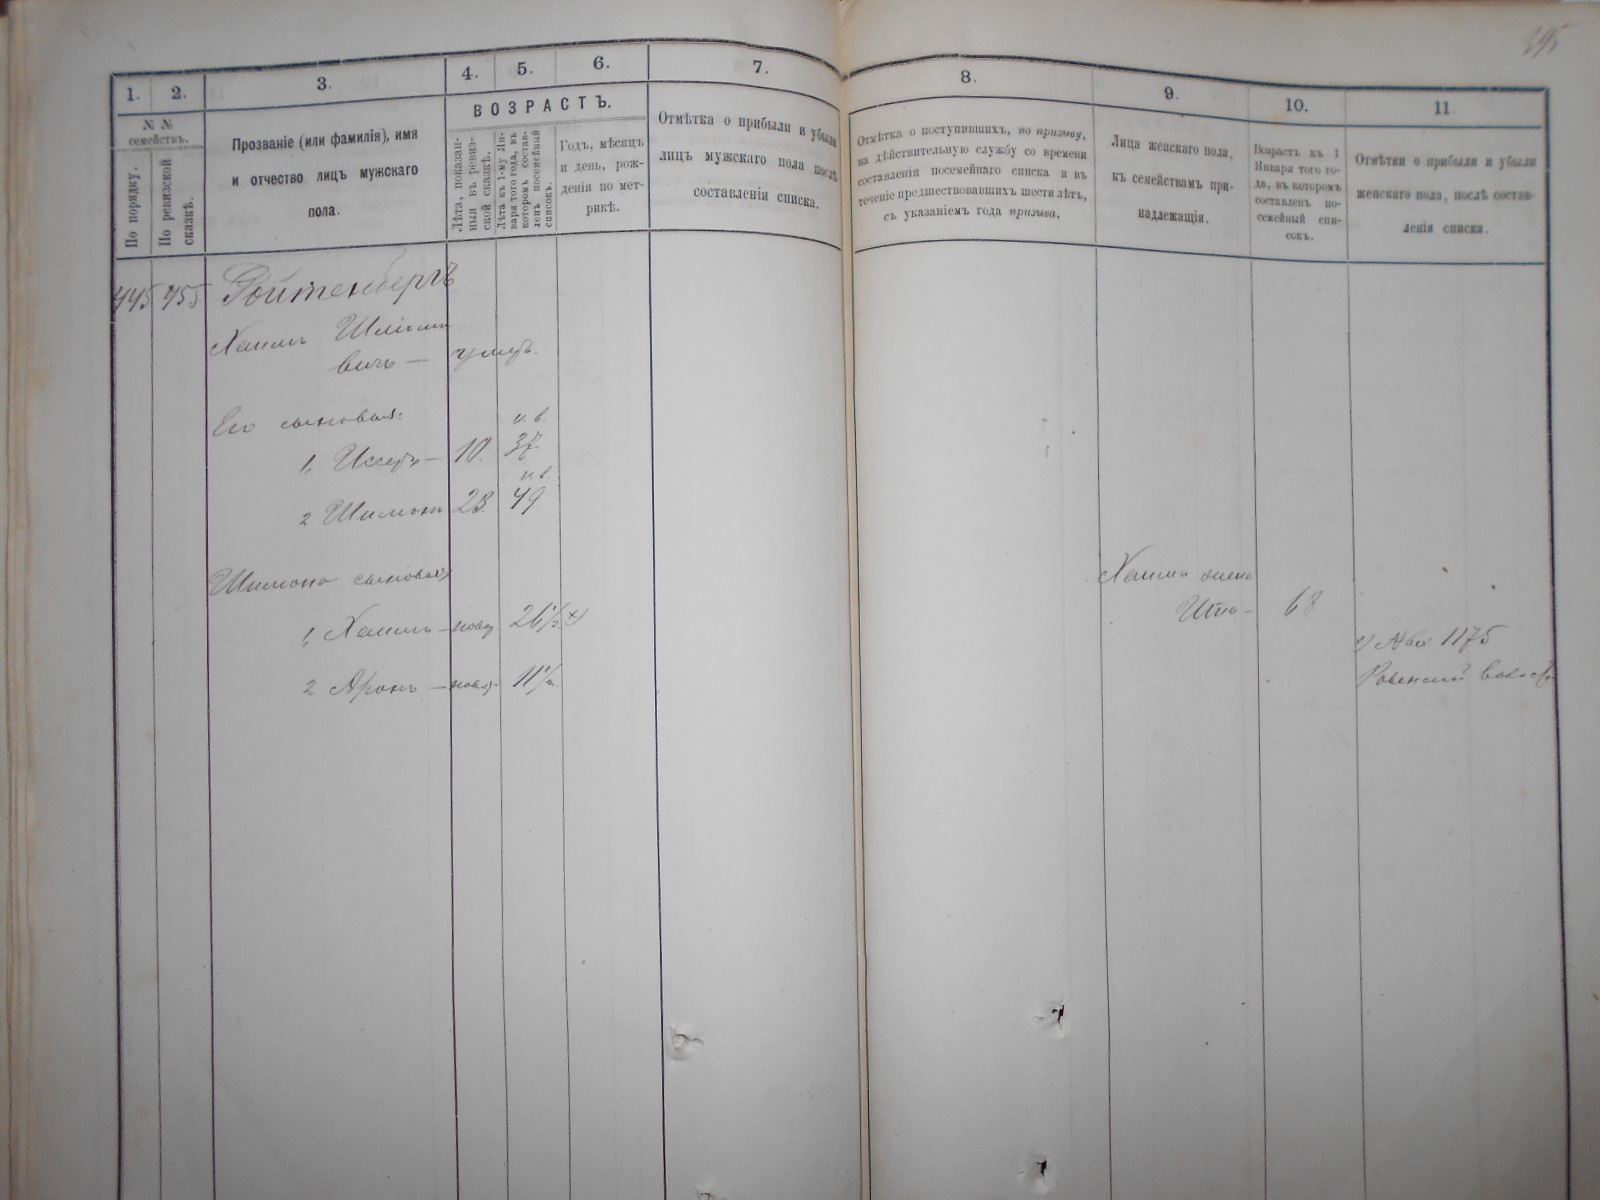 1. 2. 3. 4. 5. 6. 7.
№ № семействъ.
По порядку.
По ревизской сказкѣ.
Прозваніе (или фамилія), имя
и отчество лицъ мужскаго
пола.
ВОЗРАСТЪ.
Лѣта, показан-
ныя въ ревиз-
ской сказкѣ.
Лѣта къ 1-му Ян-
варя того года, въ
которомъ состав-
ленъ посемейный
списокъ.
Годъ, мѣсяцъ
и день, рож-
денія по мет-
рикѣ.
Отмѣтка о прибыли и убыли
лицъ мужскаго пола послѣ
составленія списка.
445 455 Ройтенбергъ
Хаимъ Шліомо
вичъ —
Его сыновья:
н. в.
1, — 10. 37.
н. в.
2 Шимонъ 23. 49
Шимона сыновья
1, Хаимъ — новор. 26½ х)
2 Аронъ — новор. 11½
8. 9. 10. 11
Отмѣтка о поступившихъ, по призыву,
на дѣйствительную службу со времени
составленія посемейнаго списка и въ
теченіе предшествовавшихъ шести лѣтъ,
съ указаніемъ года призыва.
Лица женскаго пола,
къ семействамъ при-
надлежащія.
Возрастъ къ 1
Января того го-
да, въ которомъ
составленъ по-
семейный спи-
сокъ.
Отмѣтки о прибыли и убыли
женскаго пола, послѣ состав-
ленія списка.
Хаима жена
68
1175
Ровенской